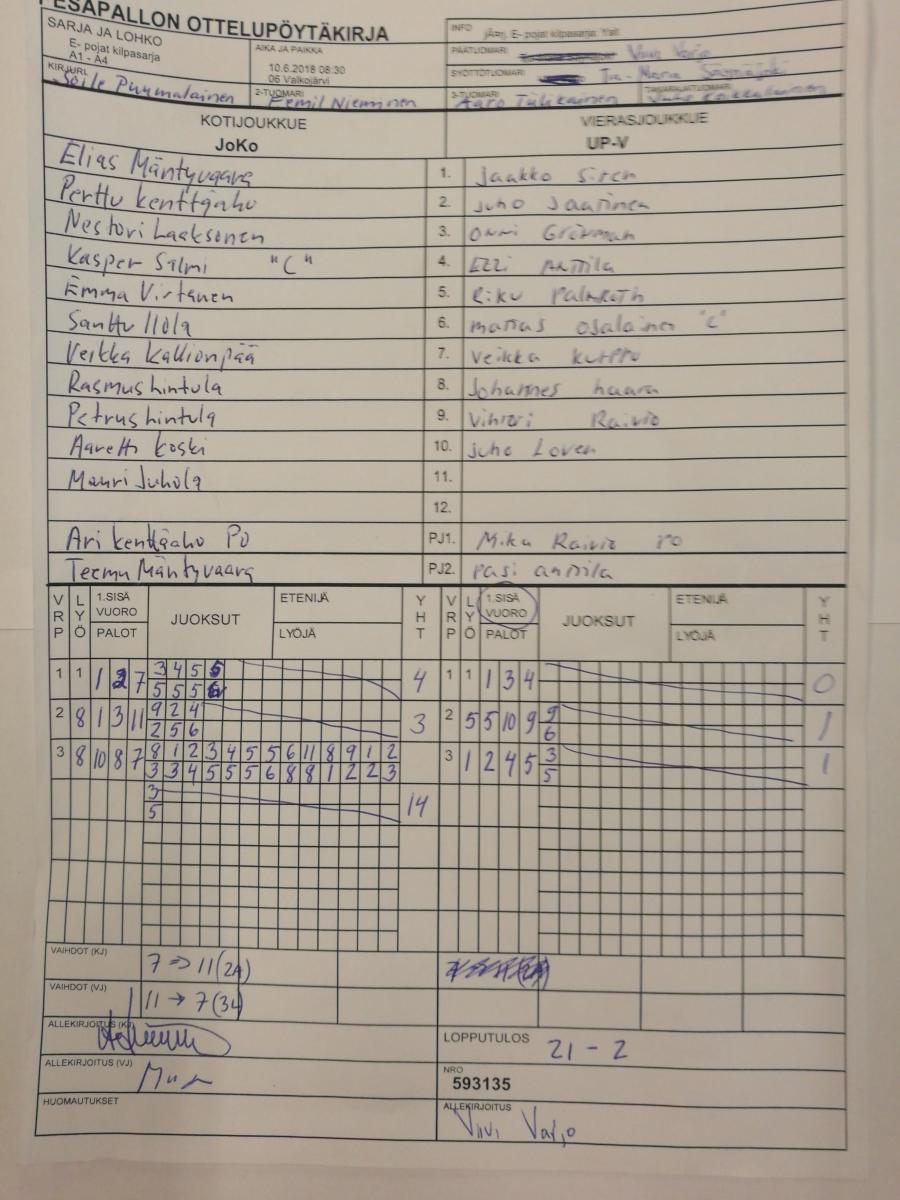 PESÄPALLON OTTELUPÖYTÄKIRJA
SARJA JA LOHKO
E- pojat kilpasarja
A1 - A4
AIKA JA PAIKKA
10.6.2018 08:30
06 Valkojärvi
INFO
E- pojat kilpasarja
PÄÄTUOMARI Viivi Varjo
SYÖTTÖTUOMARI
KIRJURI
Soile Puumalainen
2-TUOMARI Eemil Nieminen
3-TUOMARI Aaro
KOTIJOUKKUE
JoKo
VIERASJOUKKUE
UP-V
Elias Mäntyvaara 1. Jaakko Siren
Perttu Kenttäaho 2. Juho Saarinen
Nestori Laaksonen 3. Onni
Kasper Salmi "C" 4. Anttila
Emma Virtanen 5. Riku Palmroth
Santtu Ilola 6. Osalainen "C"
Veikka Kallionpää 7. Veikka Kurppu
Rasmus hintula 8. Johannes haara
Petrus hintula 9. Raivio
Aaretti Koski 10. Juho Loven
Mauri Juhola 11.
12.
Ari Kenttäaho PJ1. Mika Raivio
Teemu Mäntyvaara PJ2. Pasi Anttila
VRP LYÖ 1.SISÄ VUORO PALOT JUOKSUT ETENIJÄ LYÖJÄ YHT VRP LYÖ 1.SISÄ VUORO PALOT JUOKSUT ETENIJÄ LYÖJÄ YHT
1 1 1 2 7 3 4 5 5 4 1 1 1 3 4 0
5 5 5 6
2 8 1 3 11 9 2 4 3 2 5 5 10 9 9 1
2 5 6 6
3 8 10 8 7 8 1 2 3 4 5 5 6 11 8 9 1 2 3 1 2 4 5 3 1
3 3 4 5 5 5 6 8 8 1 2 2 3 5
3 14
5
VAIHDOT (KJ) 7 => 11 (2A)
VAIHDOT (VJ) 11 → 7 (3L)
ALLEKIRJOITUS (KJ)
LOPPUTULOS 21 - 2
ALLEKIRJOITUS (VJ)
NRO
593135
HUOMAUTUKSET
ALLEKIRJOITUS
Viivi Varjo